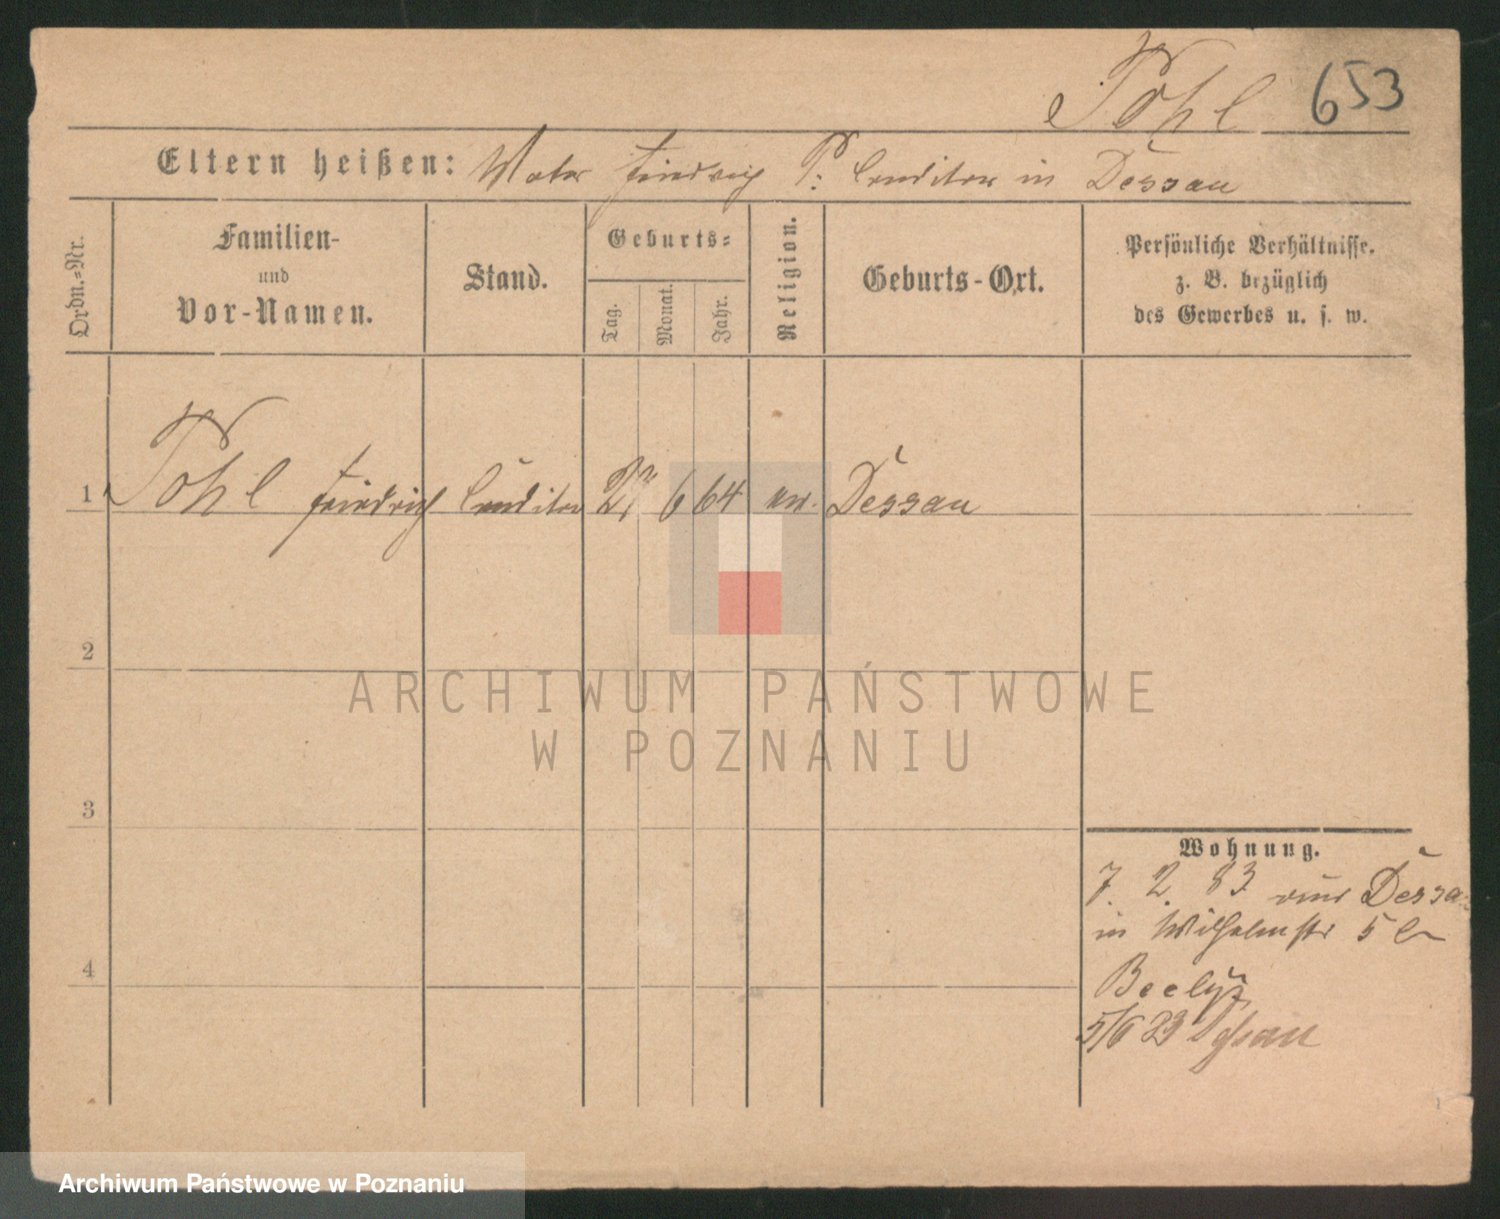 Pohl 653
Eltern heißen: Vater Friedrich P. Conditor in Dessau
Ordn.=Nr.
Familien-
und
Vor-Namen.
Stand.
Geburts=
Tag.
Monat.
Jahr.
Religion.
Geburts-Ort.
Persönliche Verhältnisse.
z. B. bezüglich
des Gewerbes u. s. w.
1 Pohl Friedrich Conditor 27 6 64 ev. Dessau
2
3
4
Wohnung.
7. 2. 83 Dessa
in Wilhelmstr 5
Beely
5/6 83 Dessau
ARCHIWUM PAŃSTWOWE
W POZNANIU
Archiwum Państwowe w Poznaniu